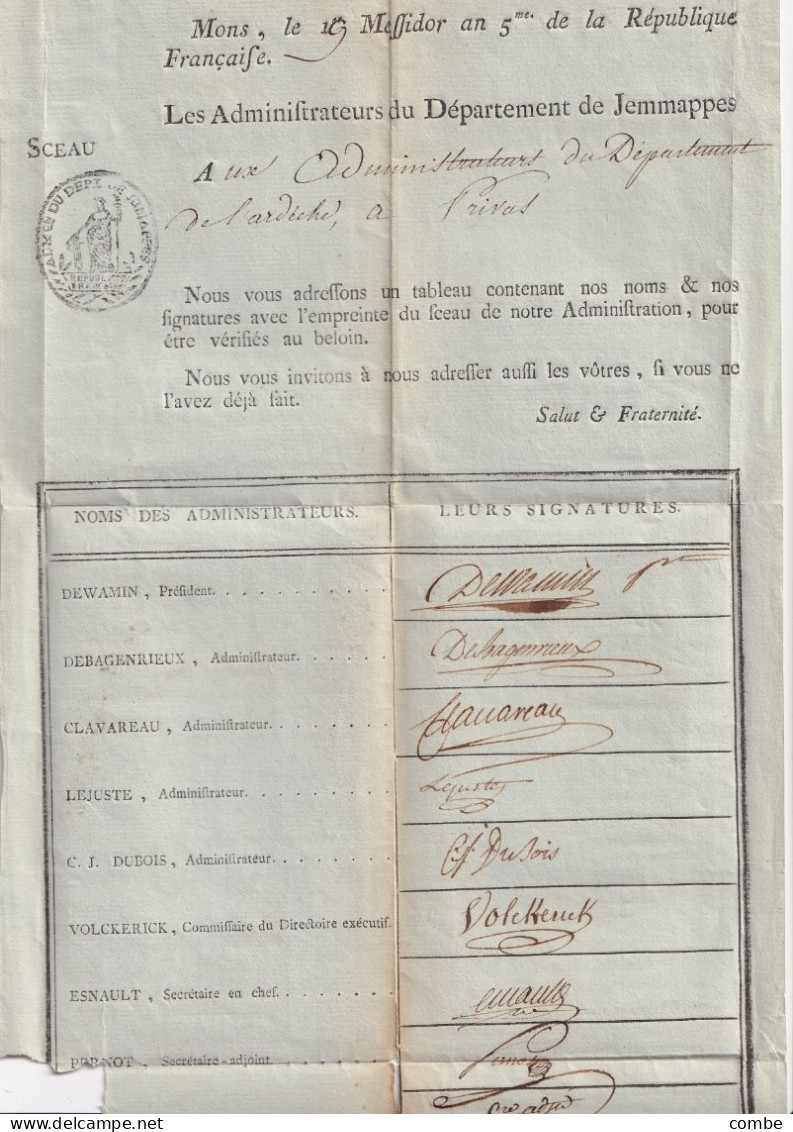 Mons, le Meſſidor an 5me. de la République
Françaiſe.
Les Adminiſtrateurs du Département de Jemmappes
SCEAU
Aux Administrateurs du Département
de l'ardèche, a Privas
Nous vous adreſſons un tableau contenant nos noms & nos
ſignatures avec l'empreinte du ſceau de notre Adminiſtration, pour
être vérifiés au beſoin.
Nous vous invitons à nous adreſſer auſſi les vôtres, ſi vous ne
l'avez déjà fait.
Salut & Fraternité.
NOMS DES ADMINISTRATEURS. LEURS SIGNATURES.
DEWAMIN, Préſident. Dewamin
DEBAGENRIEUX, Adminiſtrateur. Debagenrieux
CLAVAREAU, Adminiſtrateur. Clavareau
LEJUSTE, Adminiſtrateur. Lejuste
C. J. DUBOIS, Adminiſtrateur. C. J. DuBois
VOLCKERICK, Commiſſaire du Directoire exécutif. Volckerick
ESNAULT, Secrétaire en chef. esnault
PERNOT, Secrétaire-adjoint. Pernot
combe